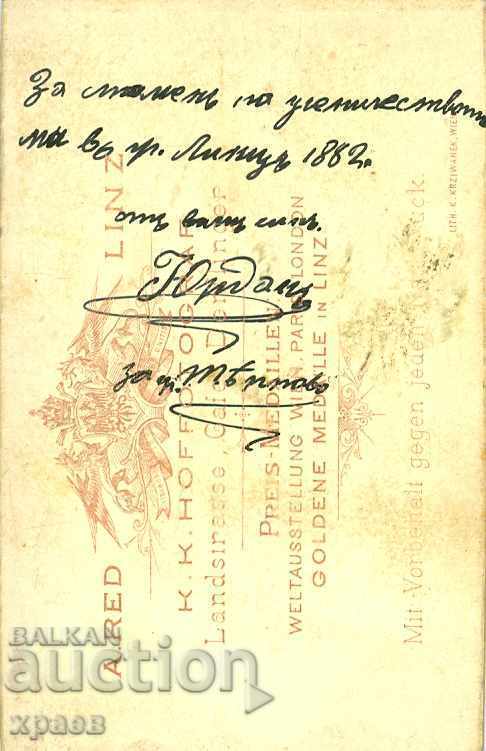 За споменъ на ученичествот
ми въ гр. Линцъ 1882.
отъ вашъ синъ.
Юрданъ
за гр. Тѣрново
A. RED LINZ
K. K. HOFFOTOGRAF
Landstrasse
PREIS-MEDAILLEN
WELTAUSSTELLUNG WIEN, PARIS, LONDON
GOLDENE MEDAILLE IN LINZ.
Mit Vorbehalt gegen jeden
LITH. K. KRZIWANEK, WIEN
BALKAN
auction
храсв